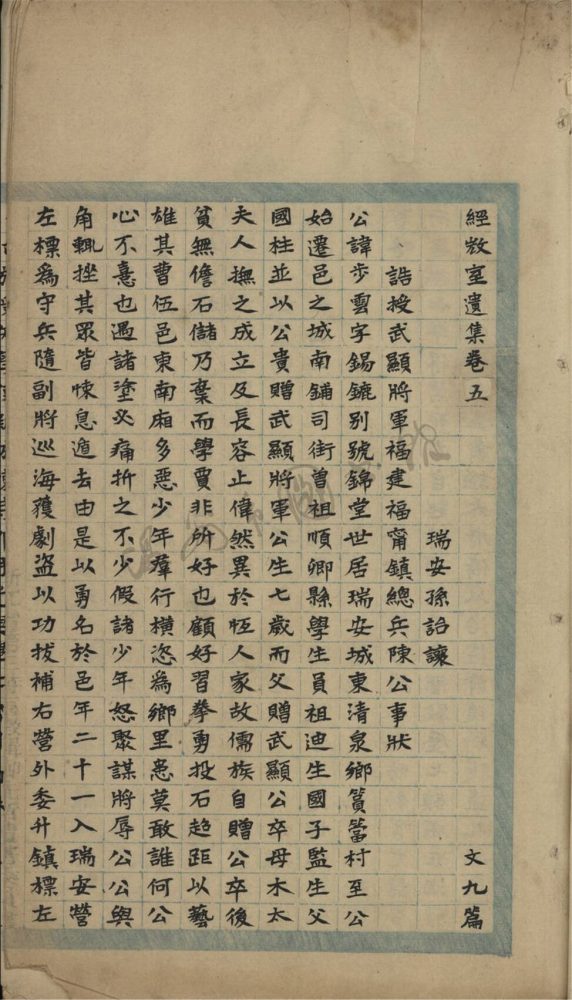 經敄室遺集卷五 文九篇
瑞安孫詒讓
誥授武顯將軍福建福甯鎮總兵陳公事狀
公諱步雲字錫鑣别號錦堂世居瑞安城東清泉鄉篔簹村至公
始遷邑之城南鋪司街曾祖順卿縣學生員祖迪生國子監生父
國柱並以公貴贈武顯將軍公生七歲而父贈武顯公卒母木太
夫人撫之成立及長容止偉然異於恆人家故儒族自贈公卒後
貧無儋石儲乃棄而學賈非所好也顧好習拳勇投石超距以藝
雄其曹伍邑東南廂多惡少年羣行橫恣為鄉里患莫敢誰何公
心不憙也遇諸塗必痛折之不少假諸少年怒聚謀將辱公公與
角輒挫其眾皆悚息遁去由是以勇名於邑年二十一入瑞安營
左標為守兵隨副將巡海獲劇盜以功拔補右營外委升鎮標左